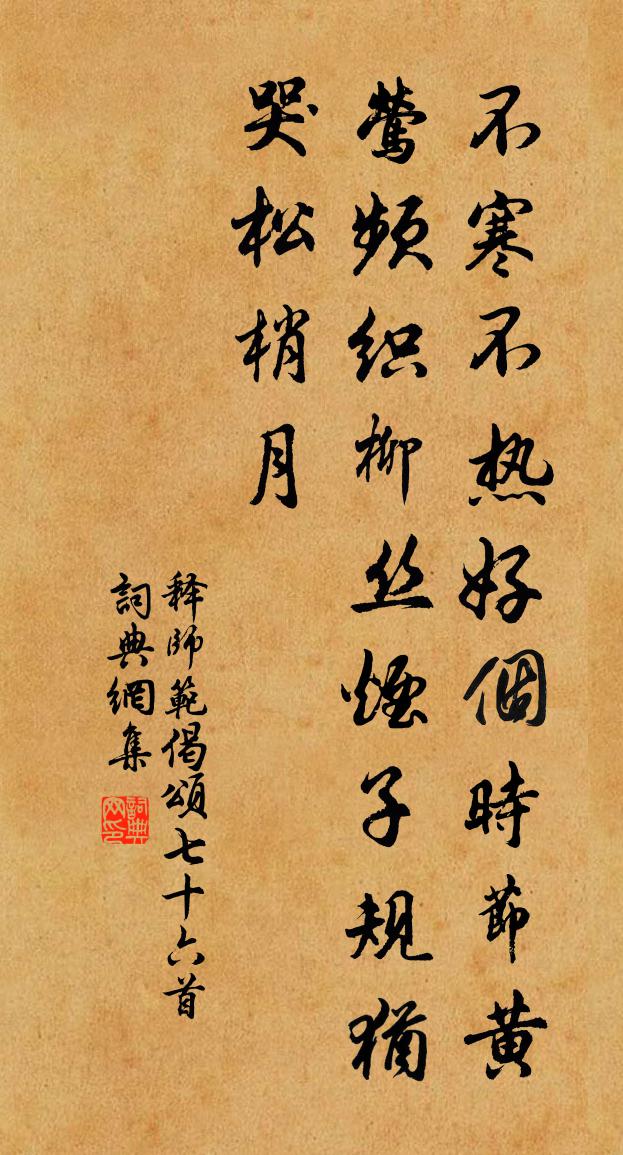 不寒不热好個時節黄
鶯頻织柳丝煙子規猶
哭松梢月
释師範偈頌七十六首
詞典網集
詞典網印